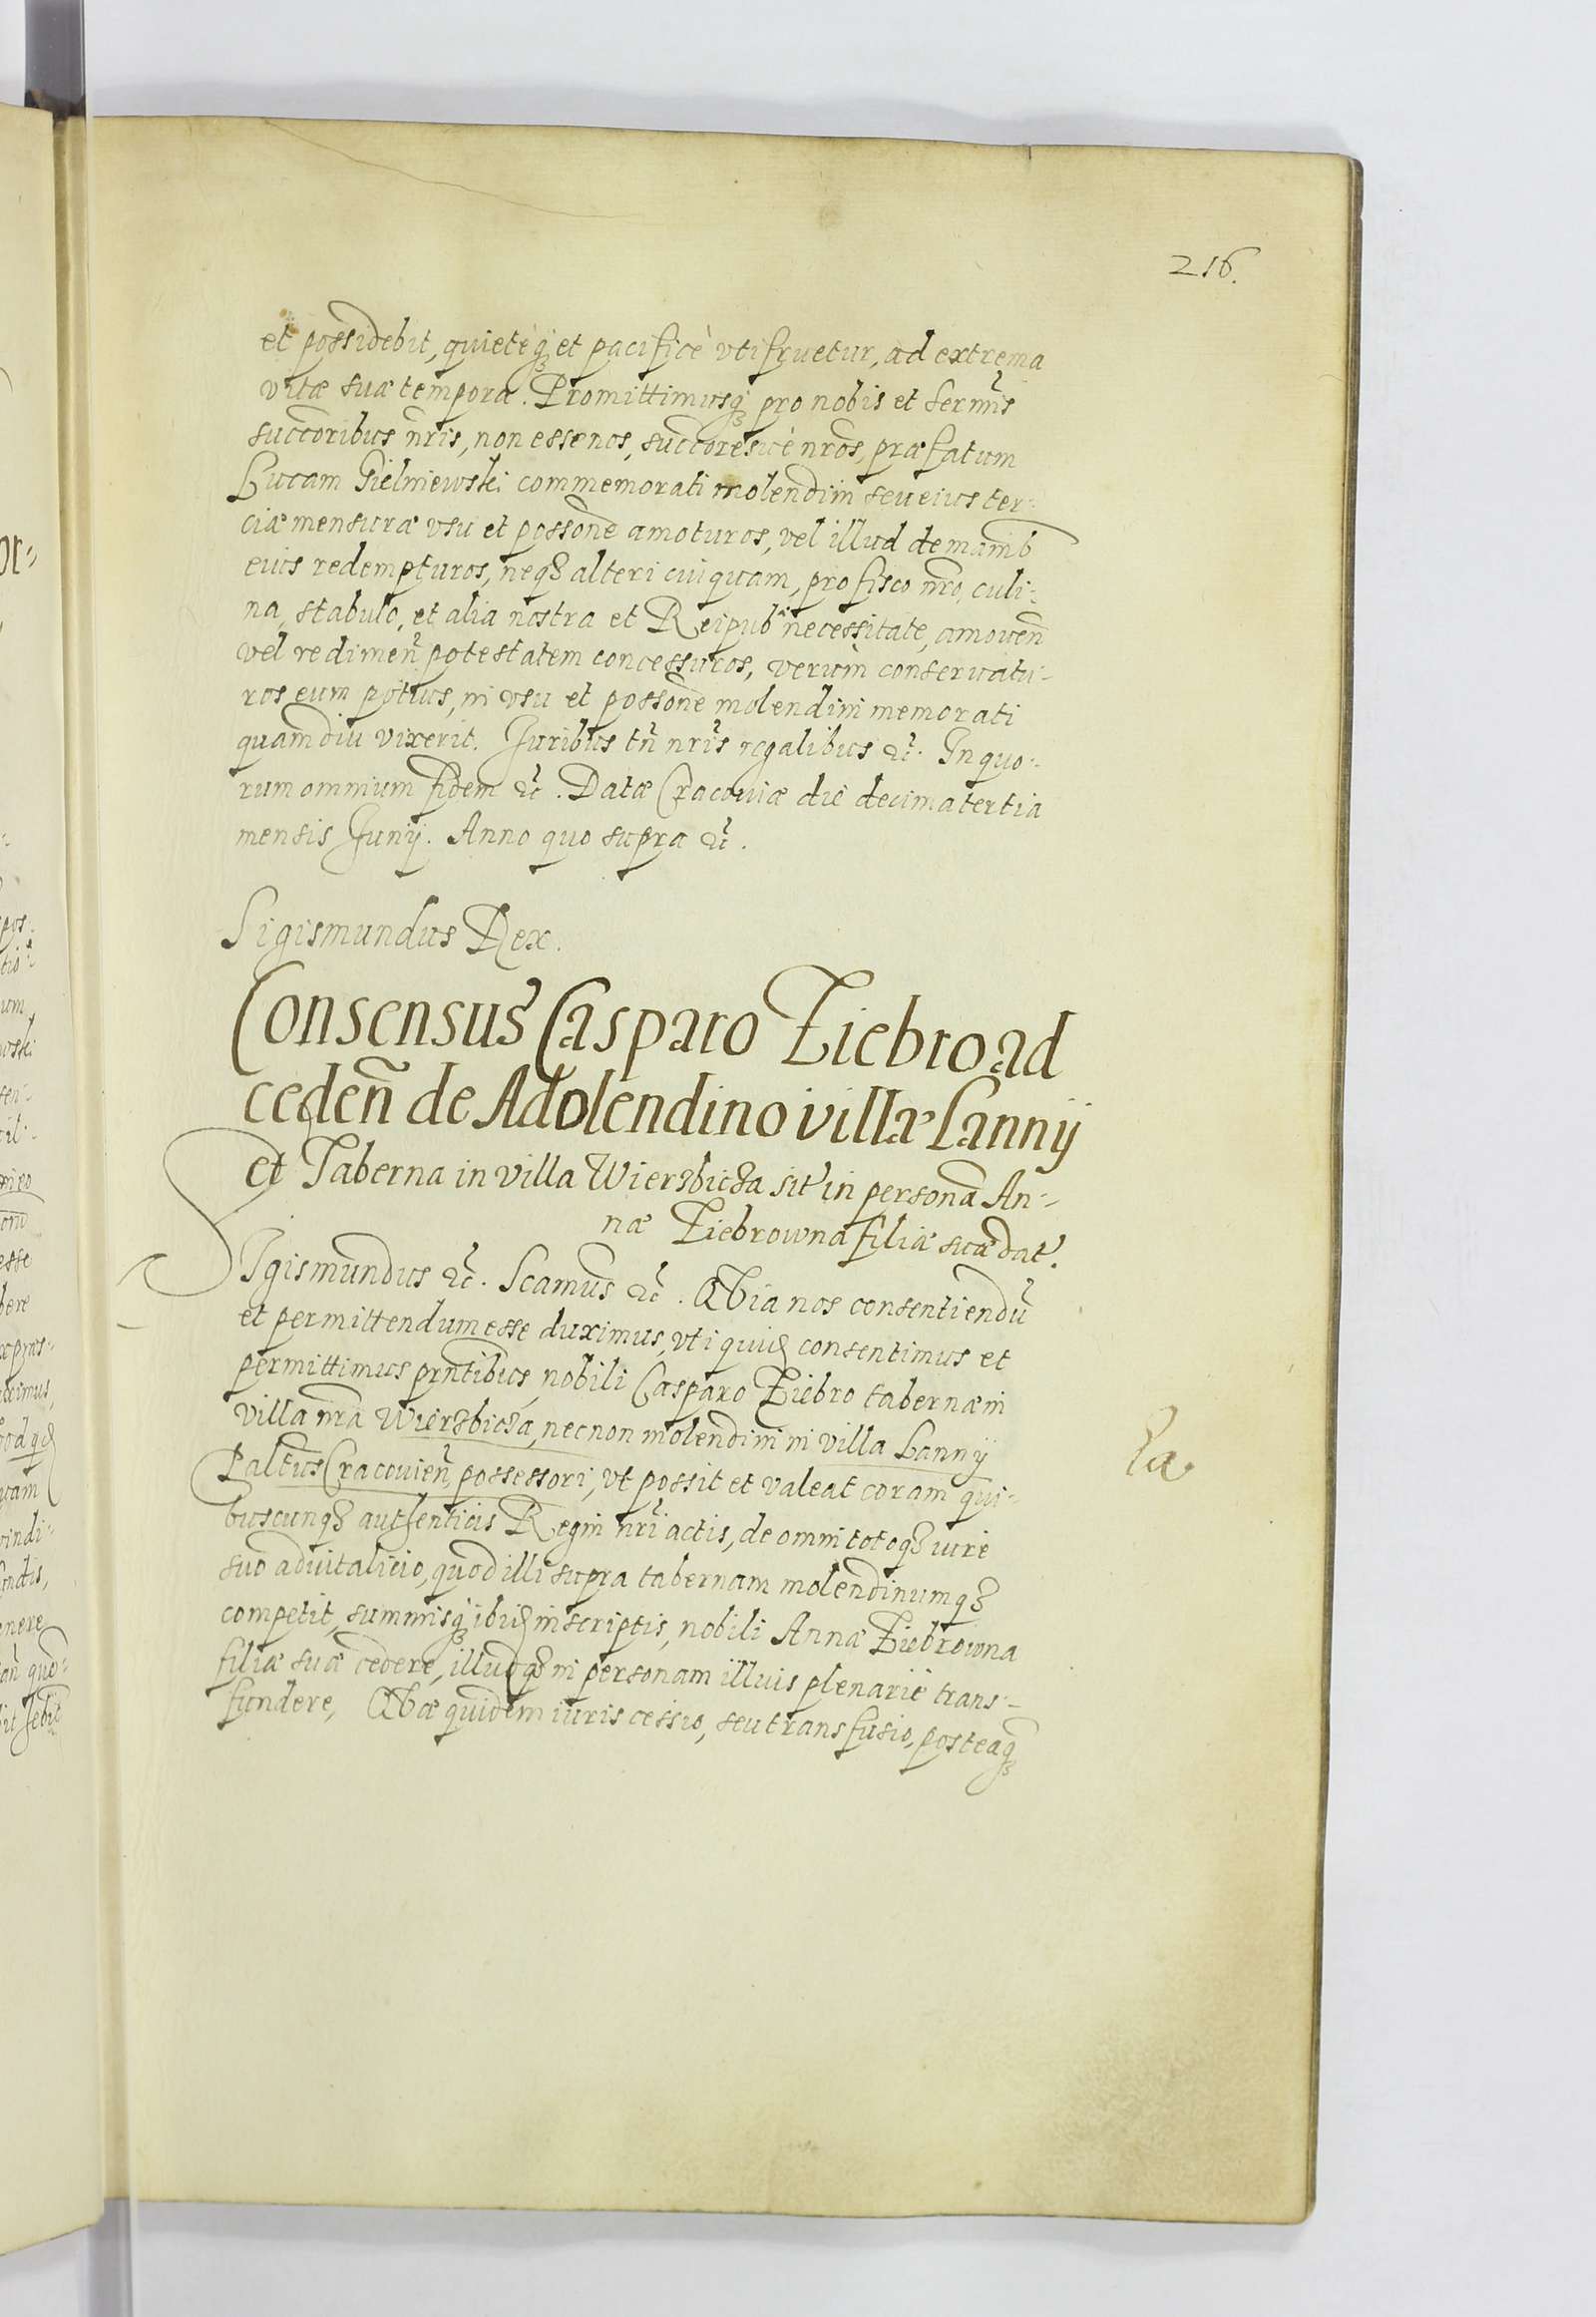 216.
et possidebit, quietèq3 et pacificè vtifruetur, ad extrema
vitæ suæ tempora. Promittimusq3 pro nobis et sermis
succoribus nris, non esse nos, succoresuè nros, præfatum
Lucam Pielniewski commemorati molendini seu eius ter-
ciæ mensuræ vsu et possone amoturos, vel illud de manib
eius redempturos, neq3 alteri cuiquam, pro fisco nro, culi-
na, stabulo, et alia nostra et Reipub necessitate, amouen
vel redimen potestatem concessuros, verùm conseruatu-
ros eum potius, in vsu et possone molendini memorati
quamdiu vixerit. Juribus tn nris regalibus &c. In quo-
rum omnium fidem &c. Datæ Cracouiæ die decima tertia
mensis Junij. Anno quo supra &c.
Sigismundus Rex.
Consensus Casparo Ziebro ad
ceden de Molendino villæ Lannij
et Taberna in villa Wierzbicza sit in persona An-
næ Ziebrowna filiæ suæ dat.
SIgismundus &c. Scamus &c. Quia nos consentiendu
et permittendum esse duximus, vti quid consentimus et
permittimus prntibus, nobili Casparo Ziebro tabernæ in
villa nra Wierzbicza, necnon molendini in villa Lannij
Paltus Cracouien possessori, vt possit et valeat coram qui-
buscunq3 authenticis Regni nri actis, de omni totoq3 iure
suo aduitalicio, quod illi supra tabernam molendinumq3
competit, summisq3 ibid inscriptis, nobili Annæ Ziebrowna
filiæ suæ cedere, illudq3 in personam illius plenariè trans-
fundere, Quæ quidem iuris cessio, seu transfusio, posteaq3